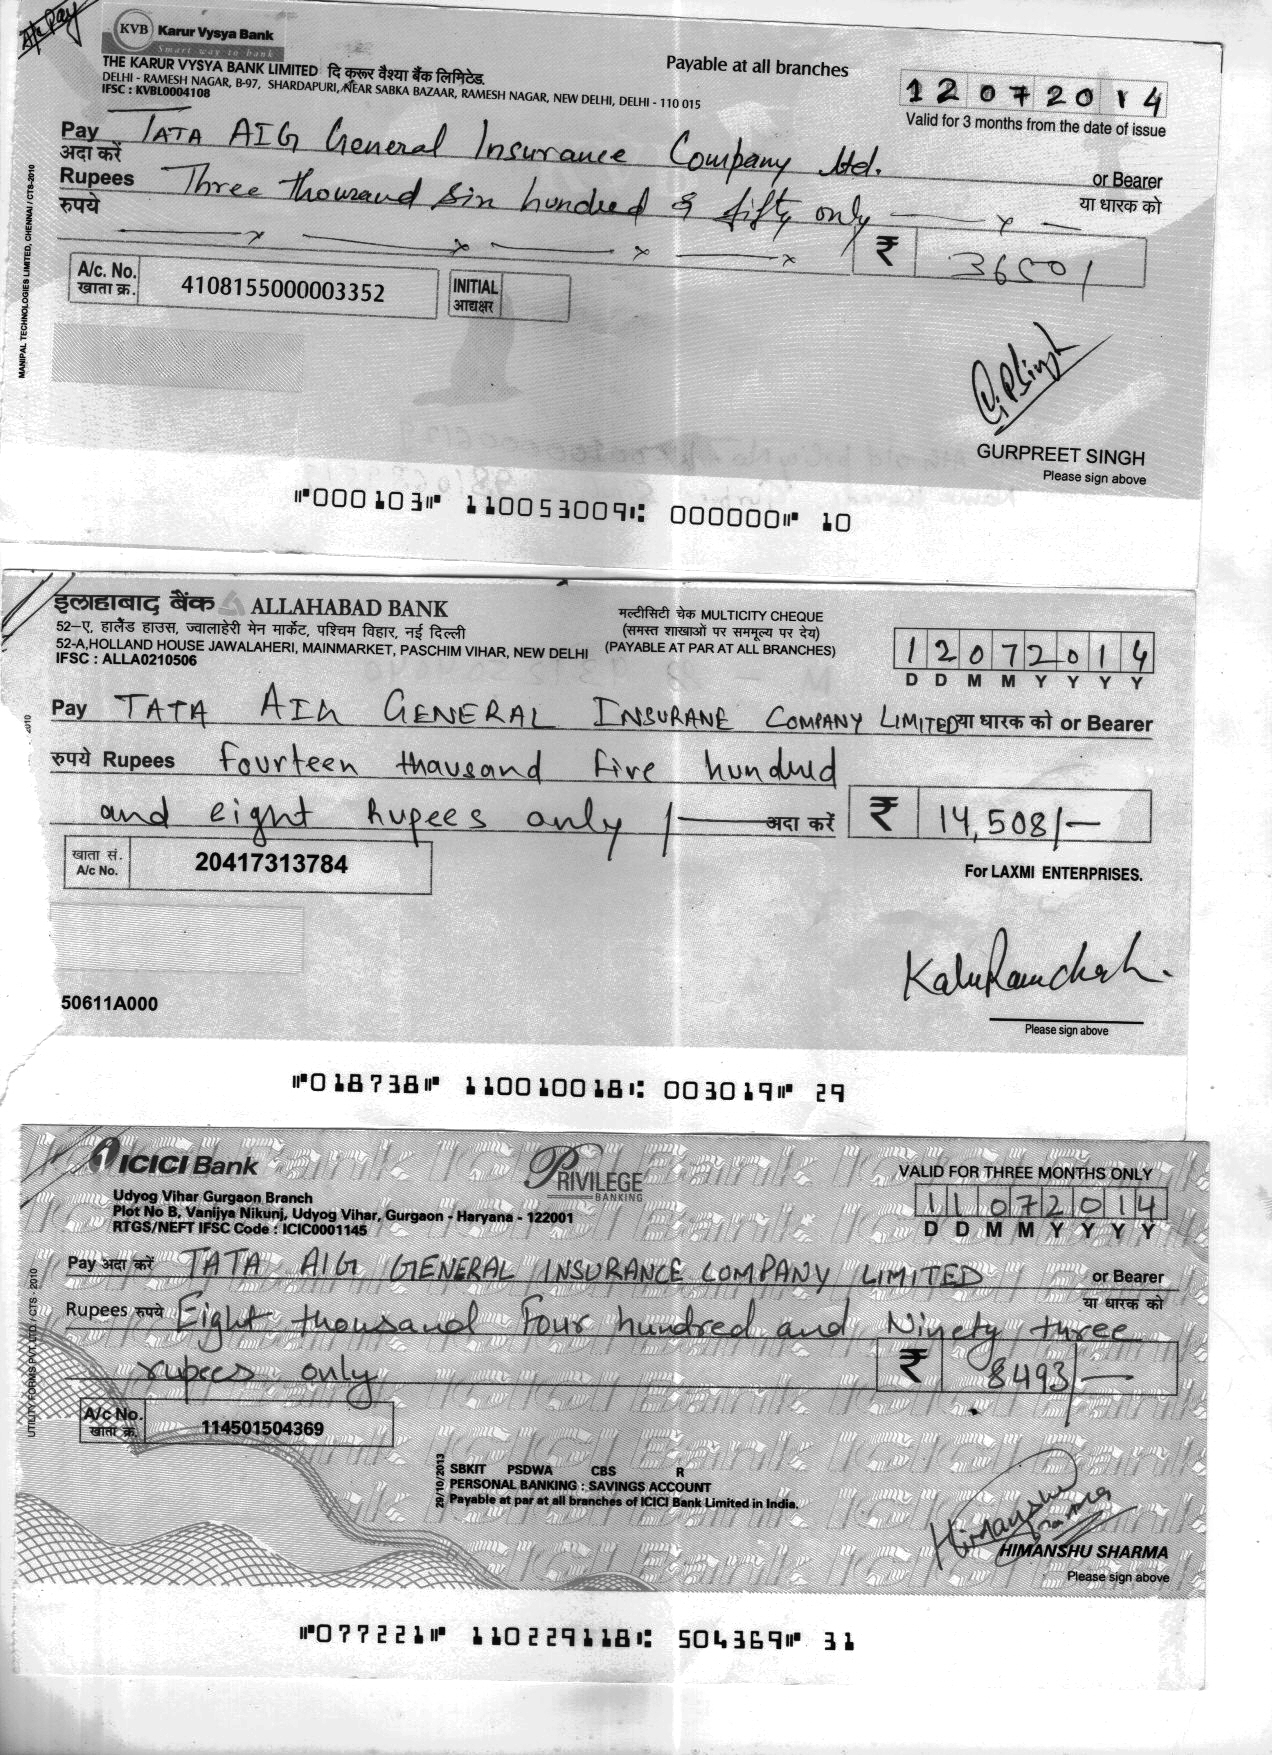 A/c Pay
KVB Karur Vysya Bank
Smart way to bank
THE KARUR VYSYA BANK LIMITED दि करूर वैश्या बैंक लिमिटेड.
DELHI - RAMESH NAGAR, B-97, SHARDAPURI, NEAR SABKA BAZAAR, RAMESH NAGAR, NEW DELHI, DELHI - 110 015
IFSC : KVBL0004108
Payable at all branches
12072014
Valid for 3 months from the date of issue
Pay TATA AIG General Insurance Company Ltd.
अदा करें
or Bearer
Rupees Three thousand six hundred & fifty only
या धारक को
रुपये
₹ 3650/
A/c. No. 4108155000003352
खाता क्र.
INITIAL
आद्यक्षर
MANIPAL TECHNOLOGIES LIMITED, CHENNAI / CTS-2010
GPSingh
GURPREET SINGH
Please sign above
⑈000103⑈ 110053009⑆ 000000⑈ 10
इलाहाबाद बैंक ALLAHABAD BANK
52-ए, हालैंड हाउस, ज्वालाहेरी मेन मार्केट, पश्चिम विहार, नई दिल्ली
52-A,HOLLAND HOUSE JAWALAHERI, MAINMARKET, PASCHIM VIHAR, NEW DELHI
IFSC : ALLA0210506
मल्टीसिटी चेक MULTICITY CHEQUE
(समस्त शाखाओं पर सममूल्य पर देय)
(PAYABLE AT PAR AT ALL BRANCHES)
12072014
D D M M Y Y Y Y
2010
Pay TATA AIG GENERAL INSURANE COMPANY LIMITED या धारक को or Bearer
रुपये Rupees fourteen thausand five hundred
and eight Rupees only /— अदा करें ₹ 14,508/—
खाता सं.
A/c No. 20417313784
For LAXMI ENTERPRISES.
50611A000
Please sign above
⑈018738⑈ 110010018⑆ 003019⑈ 29
ICICI Bank
PRIVILEGE
BANKING
VALID FOR THREE MONTHS ONLY
Udyog Vihar Gurgaon Branch
Plot No B, Vanijya Nikunj, Udyog Vihar, Gurgaon - Haryana - 122001
RTGS/NEFT IFSC Code : ICIC0001145
11072014
D D M M Y Y Y Y
Pay अदा करें TATA AIG GENERAL INSURANCE COMPANY LIMITED or Bearer
या धारक को
Rupees रुपये Eight thousand Four hundred and Ninety three
rupees only ₹ 8493/—
A/c No. 114501504369
खाता क्र.
UTILITY FORMS PVT LTD / CTS - 2010
29/10/2013
SBKIT PSDWA CBS R
PERSONAL BANKING : SAVINGS ACCOUNT
Payable at par at all branches of ICICI Bank Limited in India.
Himanshu
Sharma
HIMANSHU SHARMA
Please sign above
⑈077221⑈ 110229118⑆ 504369⑈ 31